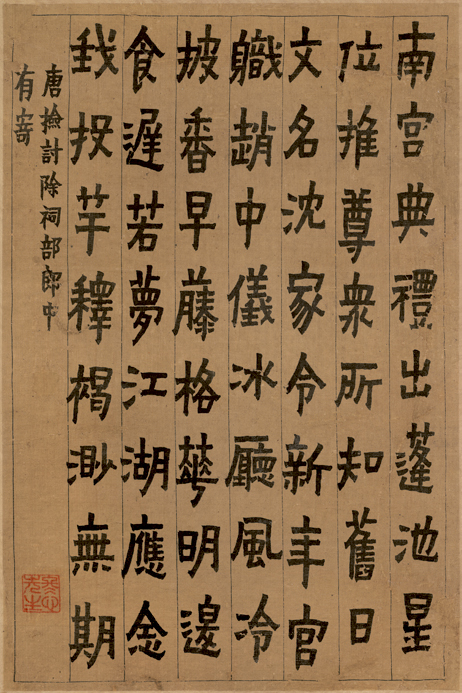 南宮典禮出蓬池星
位推尊衆所知舊日
文名沈家令新年官
軄趙中儀冰廳風冷
披番早藤格華明邊
食遲若夢江湖應念
我投竿釋褐渺無期
唐撿討除祠部郎中
有寄
冬心先生